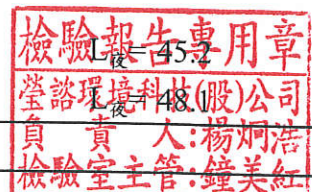 檢驗報告專用章
L夜= 45.2
瑩諮環境科技(股)公司
L夜= 48.1
負責人:楊炯浩
檢驗室主管:鐘美紅